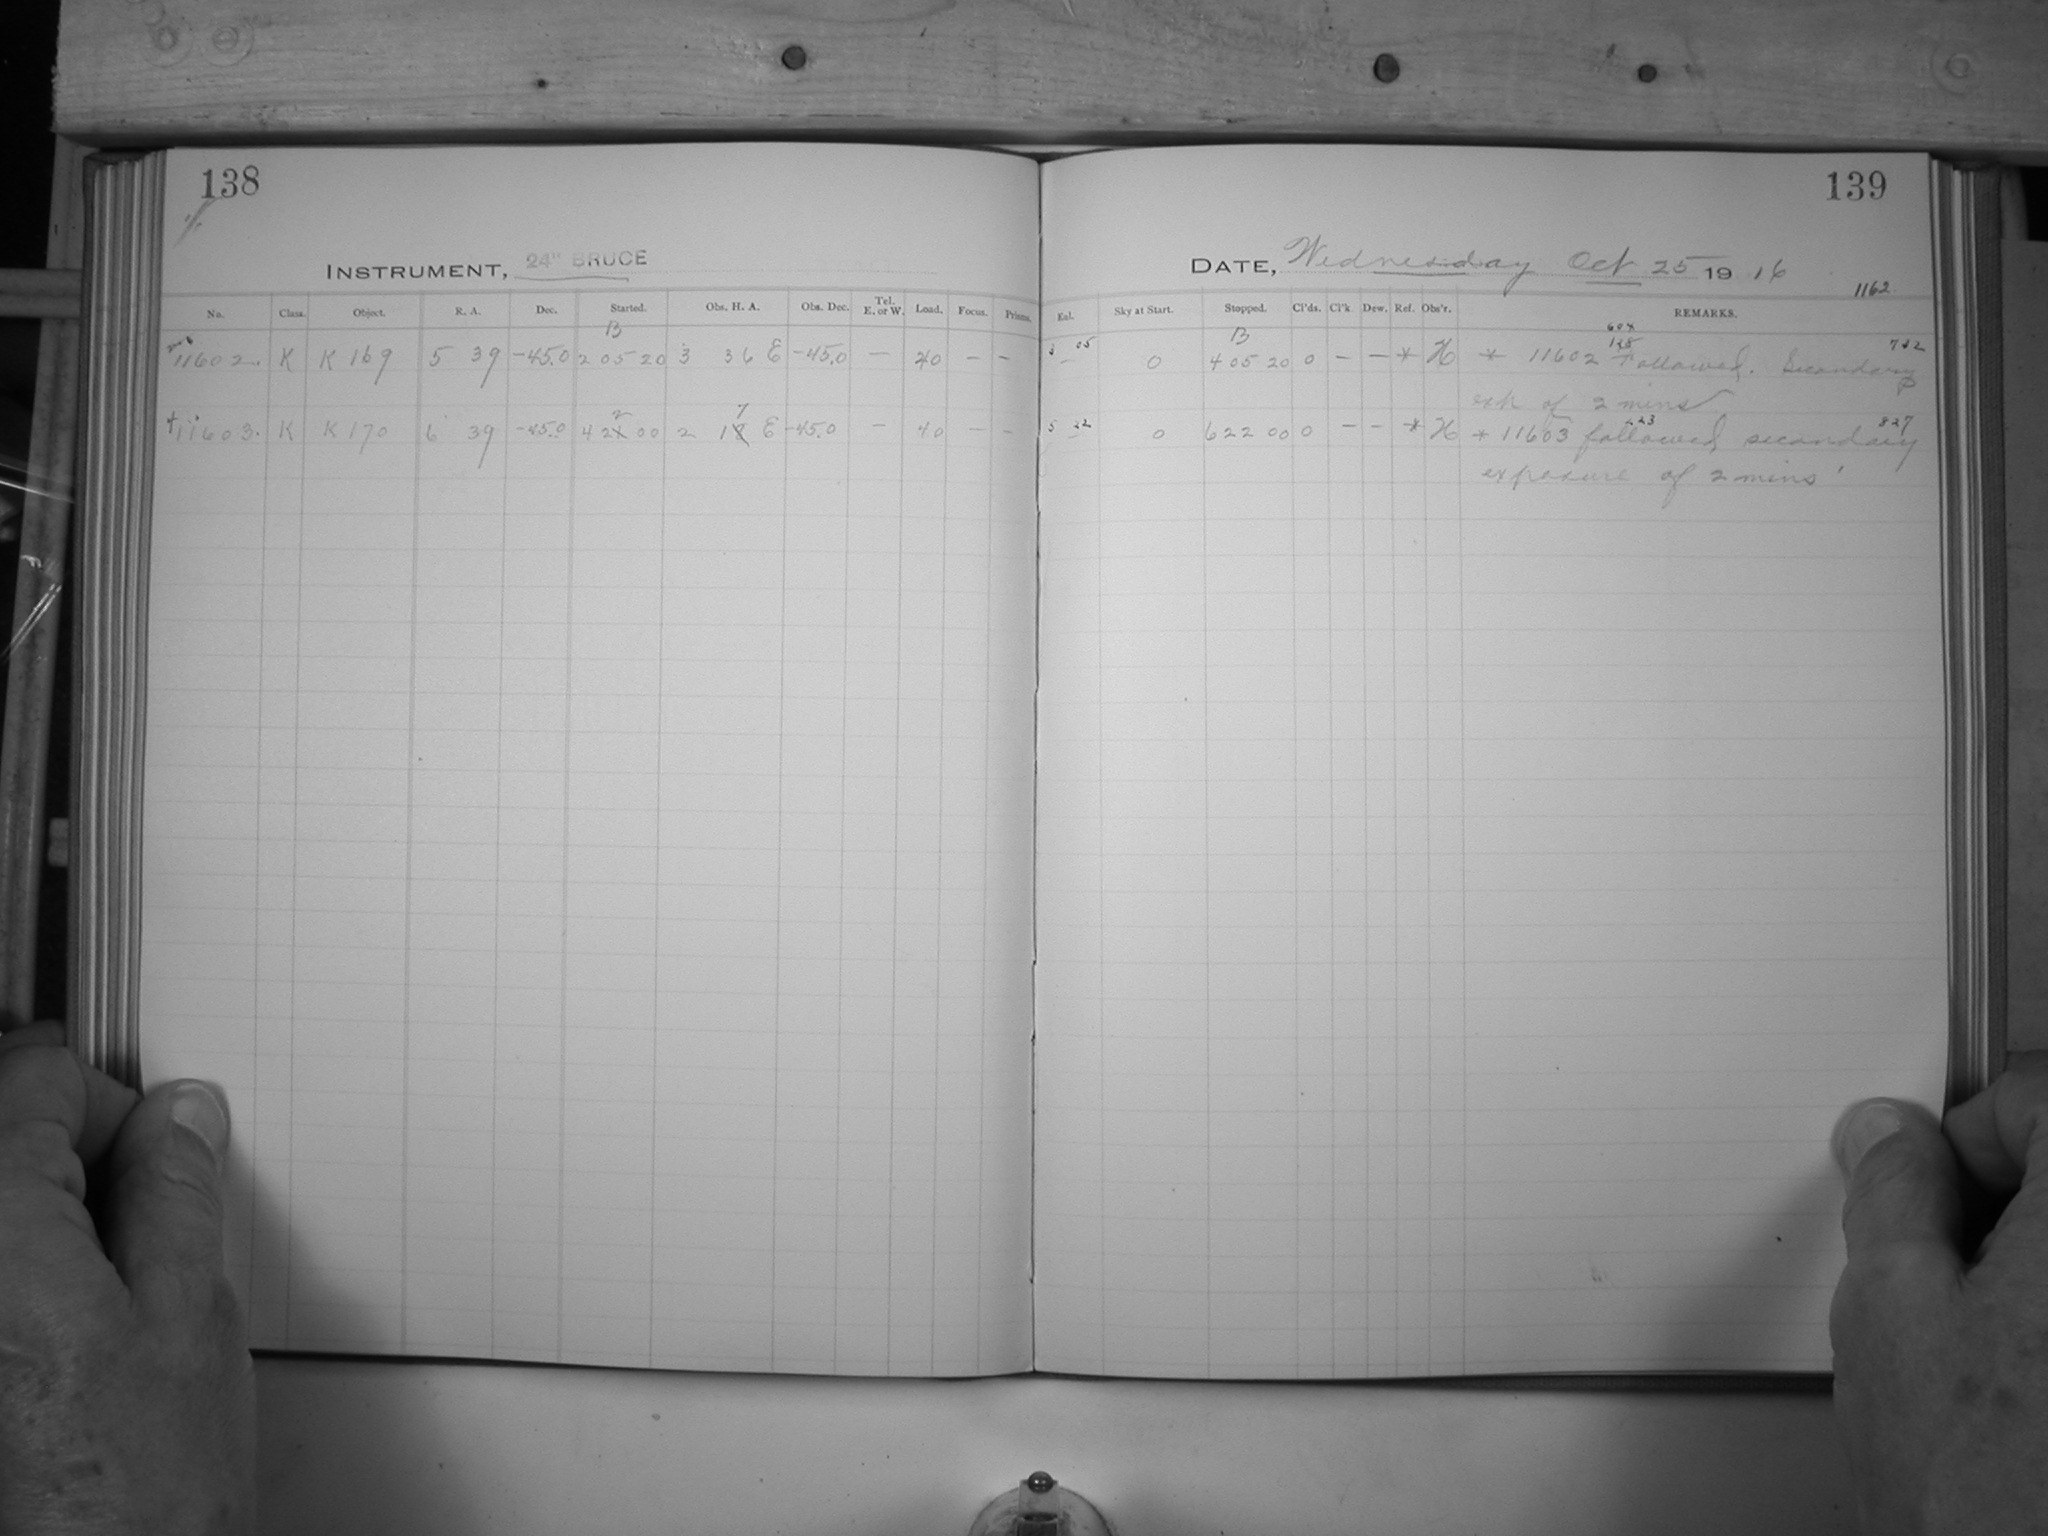 138
139
INSTRUMENT, 24" BRUCE
DATE, Wednesday Oct 25 1916
1162
No. Class. Object. R. A. Dec. Started. Obs. H. A. Obs. Dec. Tel. E. or W. Load. Focus. Prisms. Enl. Sky at Start. Stopped. Cl'ds. Cl'k Dew. Ref. Obs'r. REMARKS.
B B 604
11602. K K 169 5 39 -45.0 2 05 20 3 36 E -45.0 — 40 — — 3 05 0 4 05 20 0 — — * H * 11602 Followed. Secondary
exp of 2 mins
11603. K K 170 6 39 -45.0 4 22 00 2 17 E -45.0 — 40 — — 5 22 0 6 22 00 0 — — * H * 11603 followed, secondary 827
exposure of 2 mins